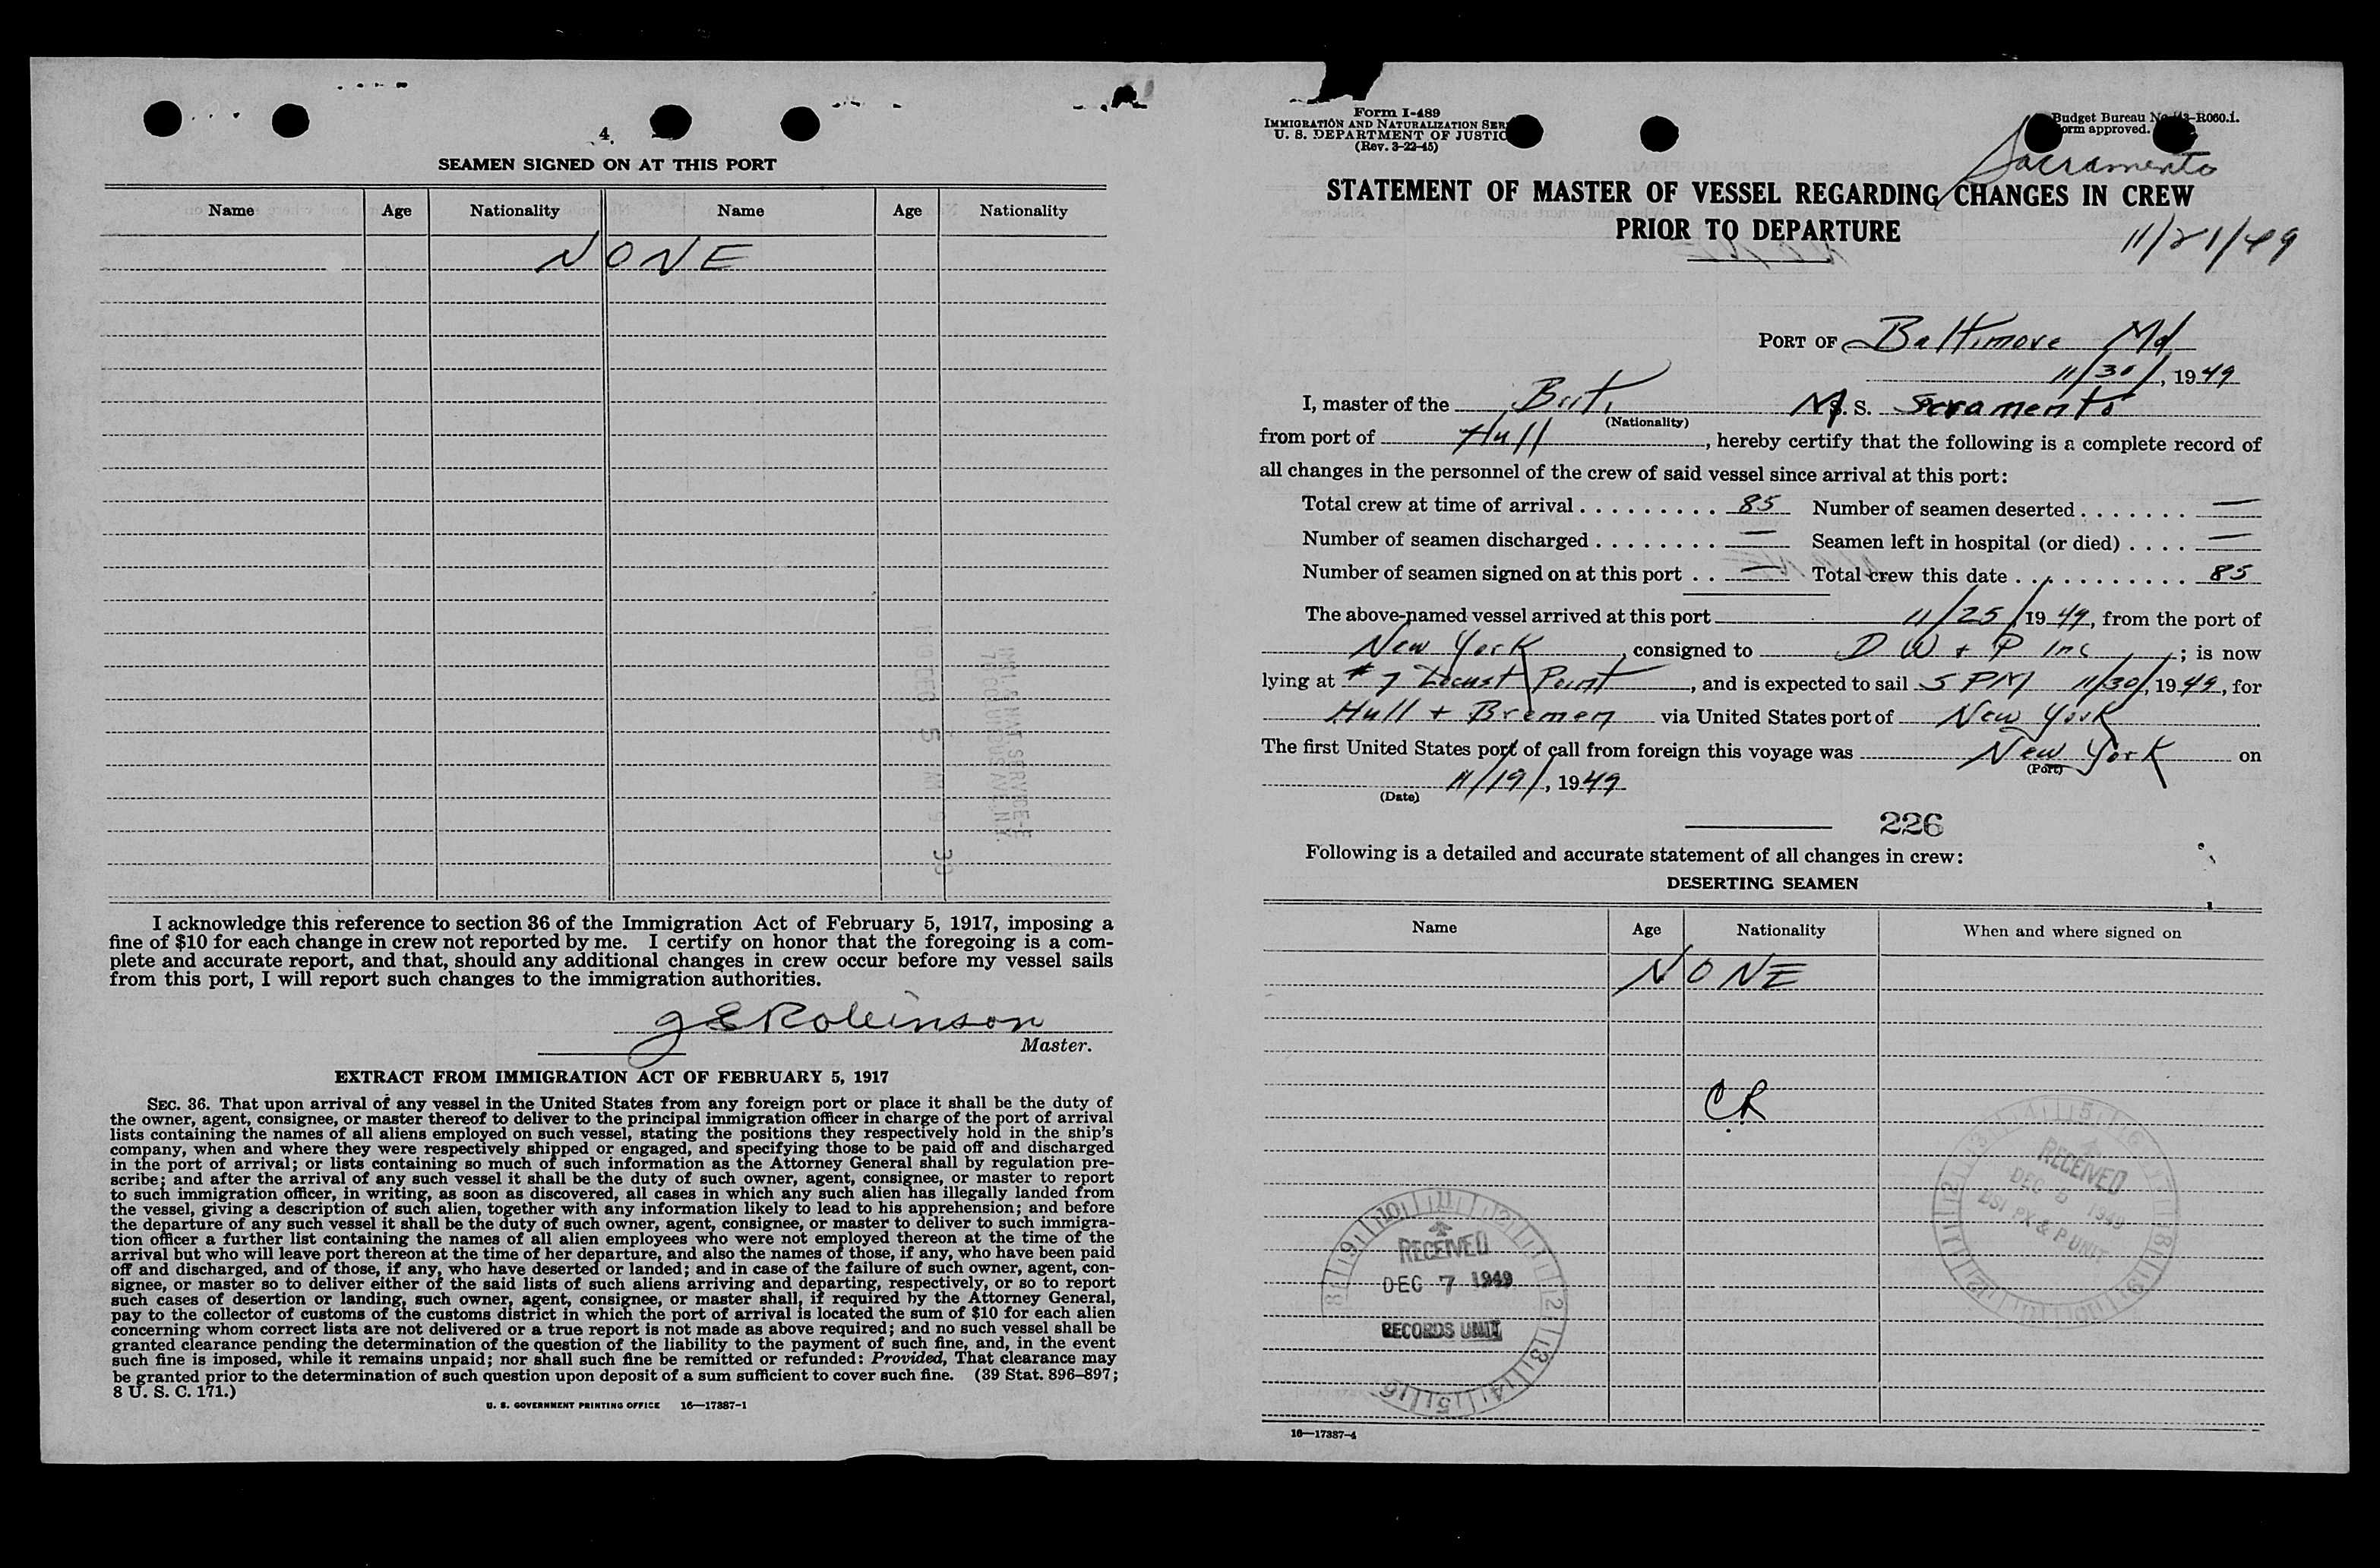 4
SEAMEN SIGNED ON AT THIS PORT
Name Age Nationality Name Age Nationality
NONE
I acknowledge this reference to section 36 of the Immigration Act of February 5, 1917, imposing a
fine of $10 for each change in crew not reported by me. I certify on honor that the foregoing is a com-
plete and accurate report, and that, should any additional changes in crew occur before my vessel sails
from this port, I will report such changes to the immigration authorities.
J E Robinson
Master.
EXTRACT FROM IMMIGRATION ACT OF FEBRUARY 5, 1917
SEC. 36. That upon arrival of any vessel in the United States from any foreign port or place it shall be the duty of
the owner, agent, consignee, or master thereof to deliver to the principal immigration officer in charge of the port of arrival
lists containing the names of all aliens employed on such vessel, stating the positions they respectively hold in the ship's
company, when and where they were respectively shipped or engaged, and specifying those to be paid off and discharged
in the port of arrival; or lists containing so much of such information as the Attorney General shall by regulation pre-
scribe; and after the arrival of any such vessel it shall be the duty of such owner, agent, consignee, or master to report
to such immigration officer, in writing, as soon as discovered, all cases in which any such alien has illegally landed from
the vessel, giving a description of such alien, together with any information likely to lead to his apprehension; and before
the departure of any such vessel it shall be the duty of such owner, agent, consignee, or master to deliver to such immigra-
tion officer a further list containing the names of all alien employees who were not employed thereon at the time of the
arrival but who will leave port thereon at the time of her departure, and also the names of those, if any, who have been paid
off and discharged, and of those, if any, who have deserted or landed; and in case of the failure of such owner, agent, con-
signee, or master so to deliver either of the said lists of such aliens arriving and departing, respectively, or so to report
such cases of desertion or landing, such owner, agent, consignee, or master shall, if required by the Attorney General,
pay to the collector of customs of the customs district in which the port of arrival is located the sum of $10 for each alien
concerning whom correct lists are not delivered or a true report is not made as above required; and no such vessel shall be
granted clearance pending the determination of the question of the liability to the payment of such fine, and, in the event
such fine is imposed, while it remains unpaid; nor shall such fine be remitted or refunded: Provided, That clearance may
be granted prior to the determination of such question upon deposit of a sum sufficient to cover such fine. (39 Stat. 896–897;
8 U. S. C. 171.)
U. S. GOVERNMENT PRINTING OFFICE 16—17387-1
Form I-489
IMMIGRATION AND NATURALIZATION SER
U. S. DEPARTMENT OF JUSTIC
(Rev. 3-22-45)
Budget Bureau No. 43-R060.1.
orm approved.
Sacramento
STATEMENT OF MASTER OF VESSEL REGARDING CHANGES IN CREW
PRIOR TO DEPARTURE
11/21/49
PORT OF Baltimore Md
11/30/, 1949
I, master of the Brit. M S. S. Scramento
(Nationality)
from port of Hull, hereby certify that the following is a complete record of
all changes in the personnel of the crew of said vessel since arrival at this port:
Total crew at time of arrival . . . . . . . . . 85 Number of seamen deserted . . . . . . . —
Number of seamen discharged . . . . . . . . — Seamen left in hospital (or died) . . . . —
Number of seamen signed on at this port . . — Total crew this date . . . . . . . . . . . 85
The above-named vessel arrived at this port 11/25/1949, from the port of
New York, consigned to D W + P Inc; is now
lying at # 7 Locust Point, and is expected to sail 5 PM 11/30/, 1949, for
Hull + Bremen via United States port of New York
The first United States port of call from foreign this voyage was New York on
(Port)
11/19/, 1949.
(Date)
226
Following is a detailed and accurate statement of all changes in crew:
DESERTING SEAMEN
Name Age Nationality When and where signed on
NONE
CR
RECEIVED
DEC 1949
RECEIVED
DEC 7 1949
RECORDS UNIT
16—17387-4